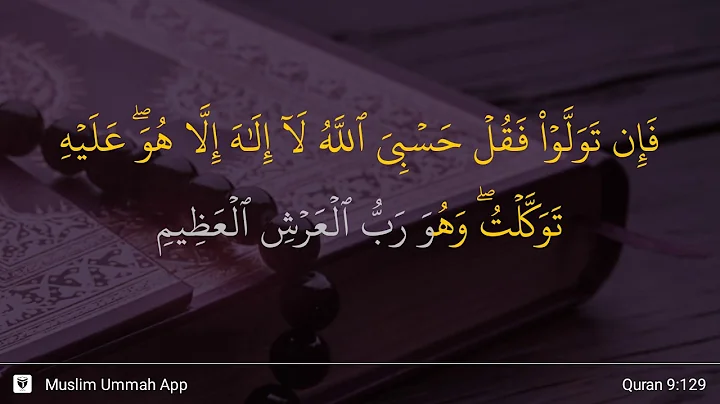 فَإِن تَوَلَّوْا۟ فَقُلْ حَسْبِىَ ٱللَّهُ لَآ إِلَـٰهَ إِلَّا هُوَ ۖ عَلَيْهِ
تَوَكَّلْتُ ۖ وَهُوَ رَبُّ ٱلْعَرْشِ ٱلْعَظِيمِ
Muslim Ummah App
Quran 9:129